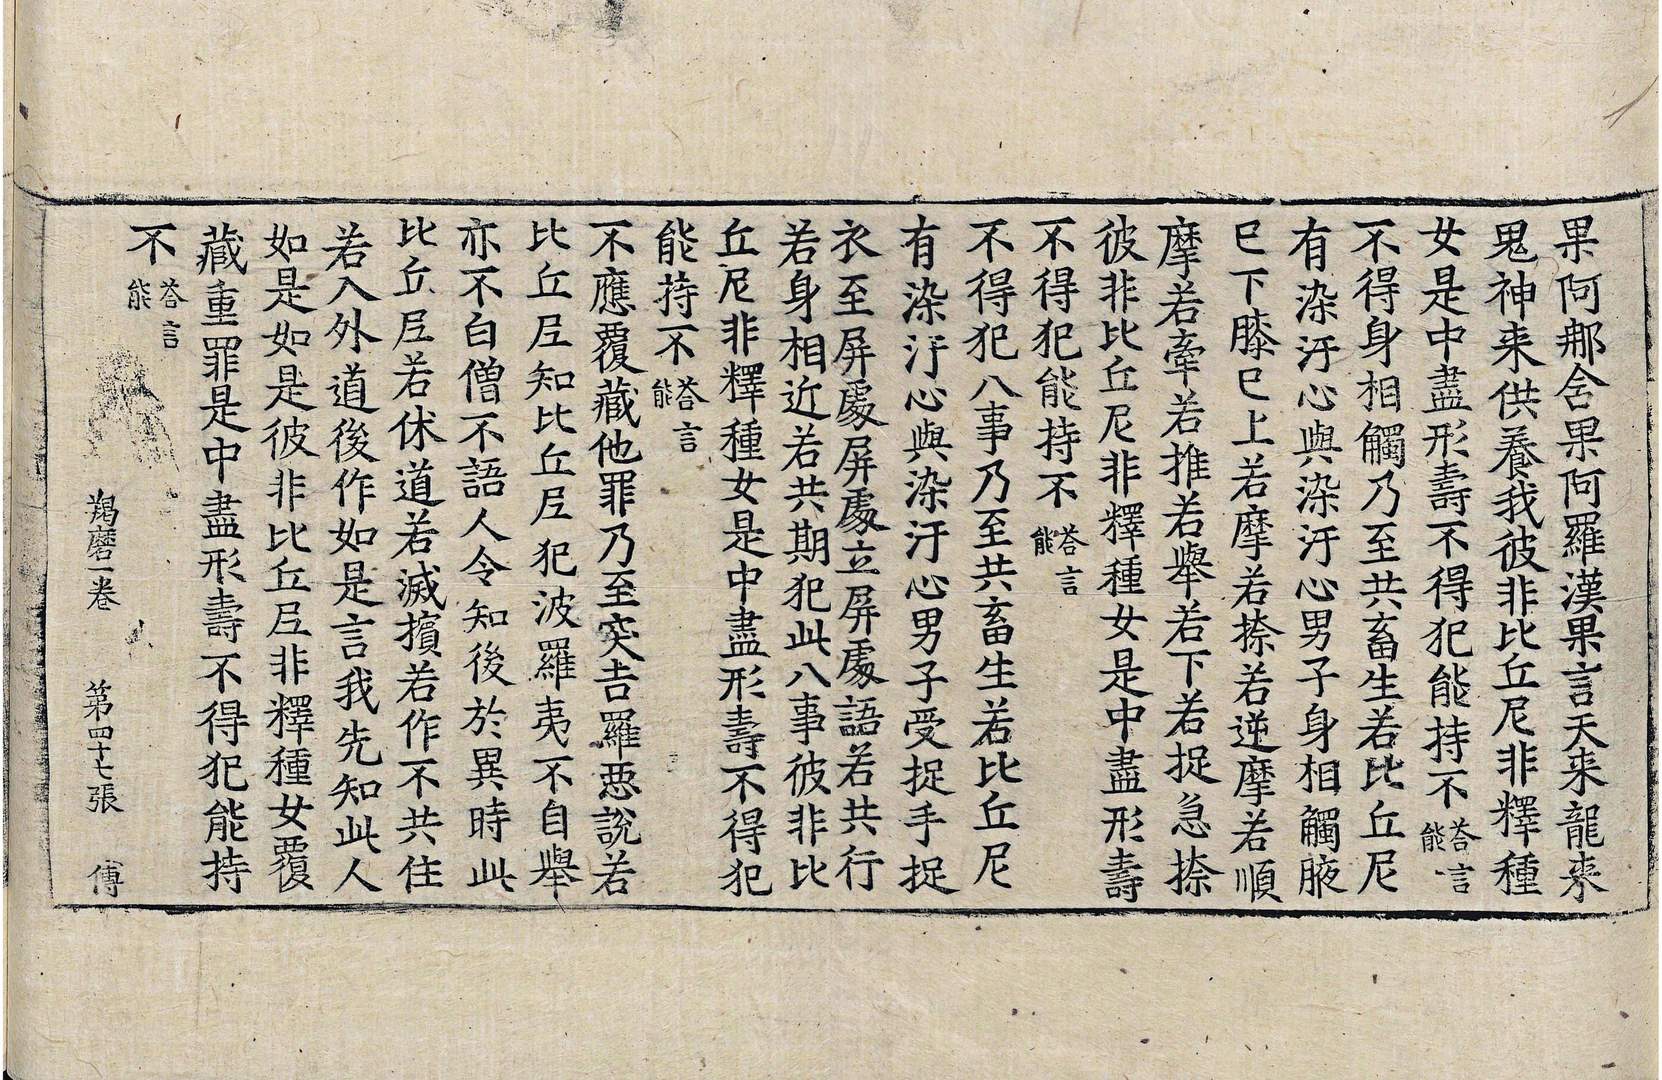 果阿那含果阿羅漢果言天来龍来
鬼神来供養我彼非比丘尼非釋種
女是中盡形壽不得犯能持不荅言能
不得身相觸乃至共畜生若比丘尼
有染汙心與染汙心男子身相觸腋
巳下膝巳上若摩若捺若逆摩若順
摩若牽若推若舉若下若捉急捺
彼非比丘尼非釋種女是中盡形壽
不得犯能持不荅言能
不得犯八事乃至共畜生若比丘尼
有染汙心與染汙心男子受捉手捉
衣至屏處屏處立屏處語若共行
若身相近若共期犯此八事彼非比
丘尼非釋種女是中盡形壽不得犯
能持不荅言能
不應覆藏他罪乃至突吉羅惡說若
比丘尼知比丘尼犯波羅夷不自舉
亦不白僧不語人令知後於異時此
比丘尼若休道若滅擯若作不共住
若入外道後作如是言我先知此人
如是如是彼非比丘尼非釋種女覆
藏重罪是中盡形壽不得犯能持
不荅言能
羯磨一卷 第四十七張 傅